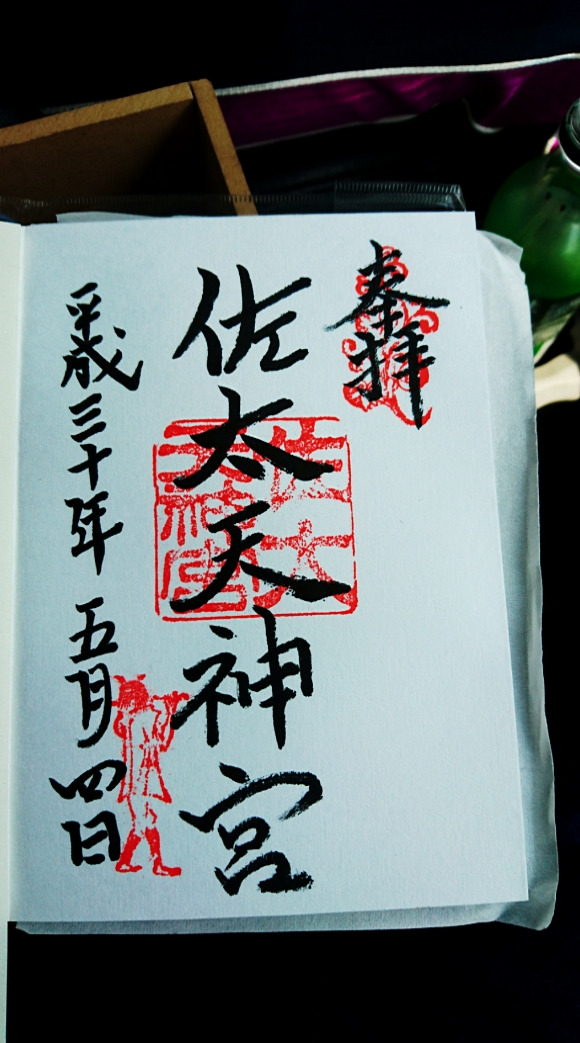 奉拝
佐太天神宮
佐太
天神宮
平成三十年五月四日